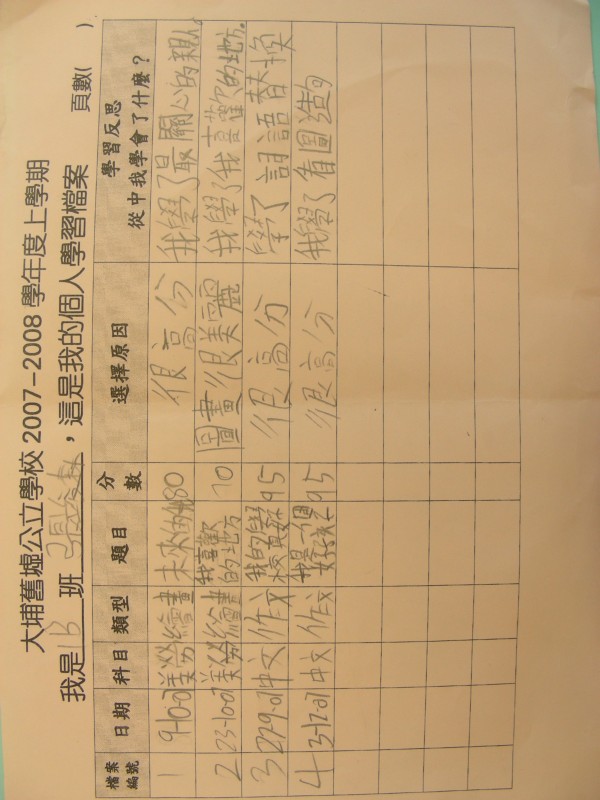 大埔舊墟公立學校 2007-2008 學年度上學期
我是 1B 班 ，這是我的個人學習檔案 頁數( )
檔案編號 日期 科目 類型 題目 分數 選擇原因 學習反思 從中我學會了什麼？
1 9-10-07 美勞 繪畫 未來的 80 很高分 我學了最關心的親人。
2 23-10-07 美勞 繪畫 我喜歡的地方 70 圖畫很美麗 我學了我喜歡的地方。
3 27-9-07 中文 作文 我的學校真好 95 很高分 學了詞語替換
4 3-12-07 中文 作文 我是一個好孩子 95 很高分 我學了看圖造句